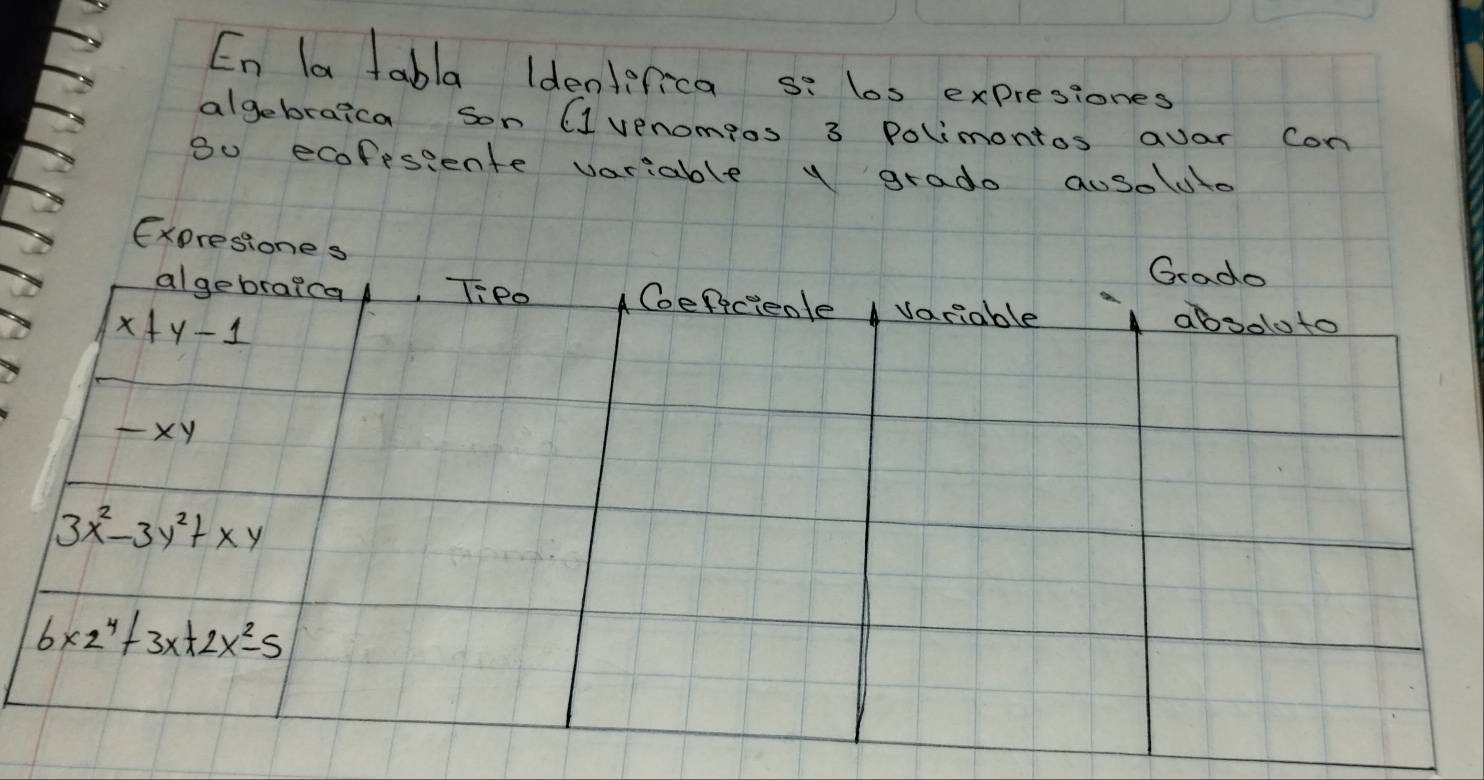 En la tabla Identifica si los expresiones
algebraica son (1 venomios 3 Polimontos avar con
su ecofesiente variable y grado ausoluto
Expresiones
algebraica Tipo Coeficiente variable Grado absoluto
x+y-1
-xy
3x²-3y²+xy
6xz⁴+3x+2x²-5